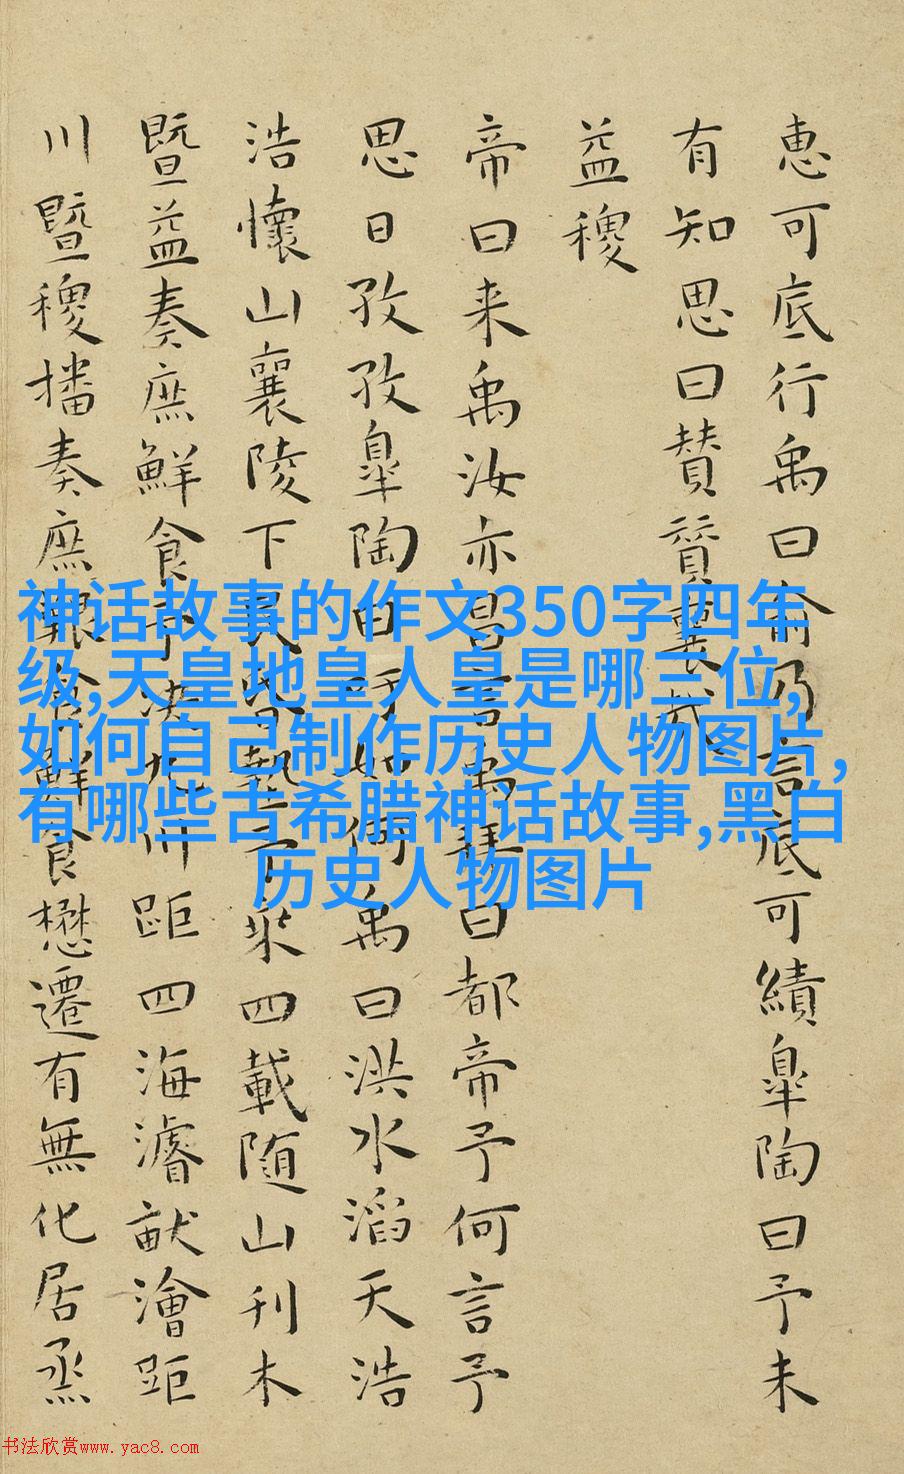 恵可底行禹曰俞乃言底可績皐陶曰予未
有知思曰賛賛襄哉
益稷
帝曰来禹汝亦昌言禹拜曰都帝予何言予
思日孜孜皐陶曰吁如何禹曰洪水滔天浩
浩懷山襄陵下民昏墊予乘四載随山刊木
暨益奏庶鮮食予决九川距四海濬畎澮距
川暨稷播奏庶艱食鮮食懋遷有無化居烝
神话故事的作文350字四年
级,天皇地皇人皇是哪三位,
如何自己制作历史人物图片,
有哪些古希腊神话故事,黑白
历史人物图片
书法欣赏www.yac8.com